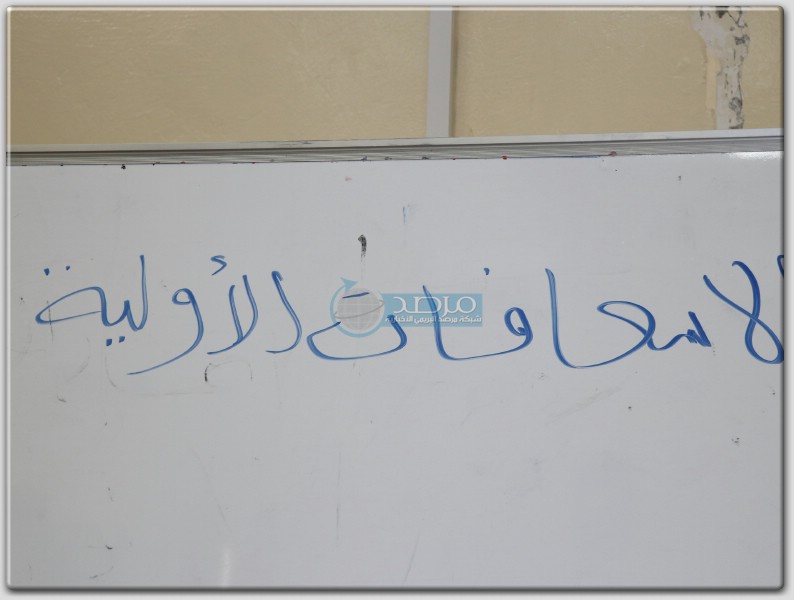 الاسعافات الأولية
مرصد
شبكة مرصد البريمي الاخبارية